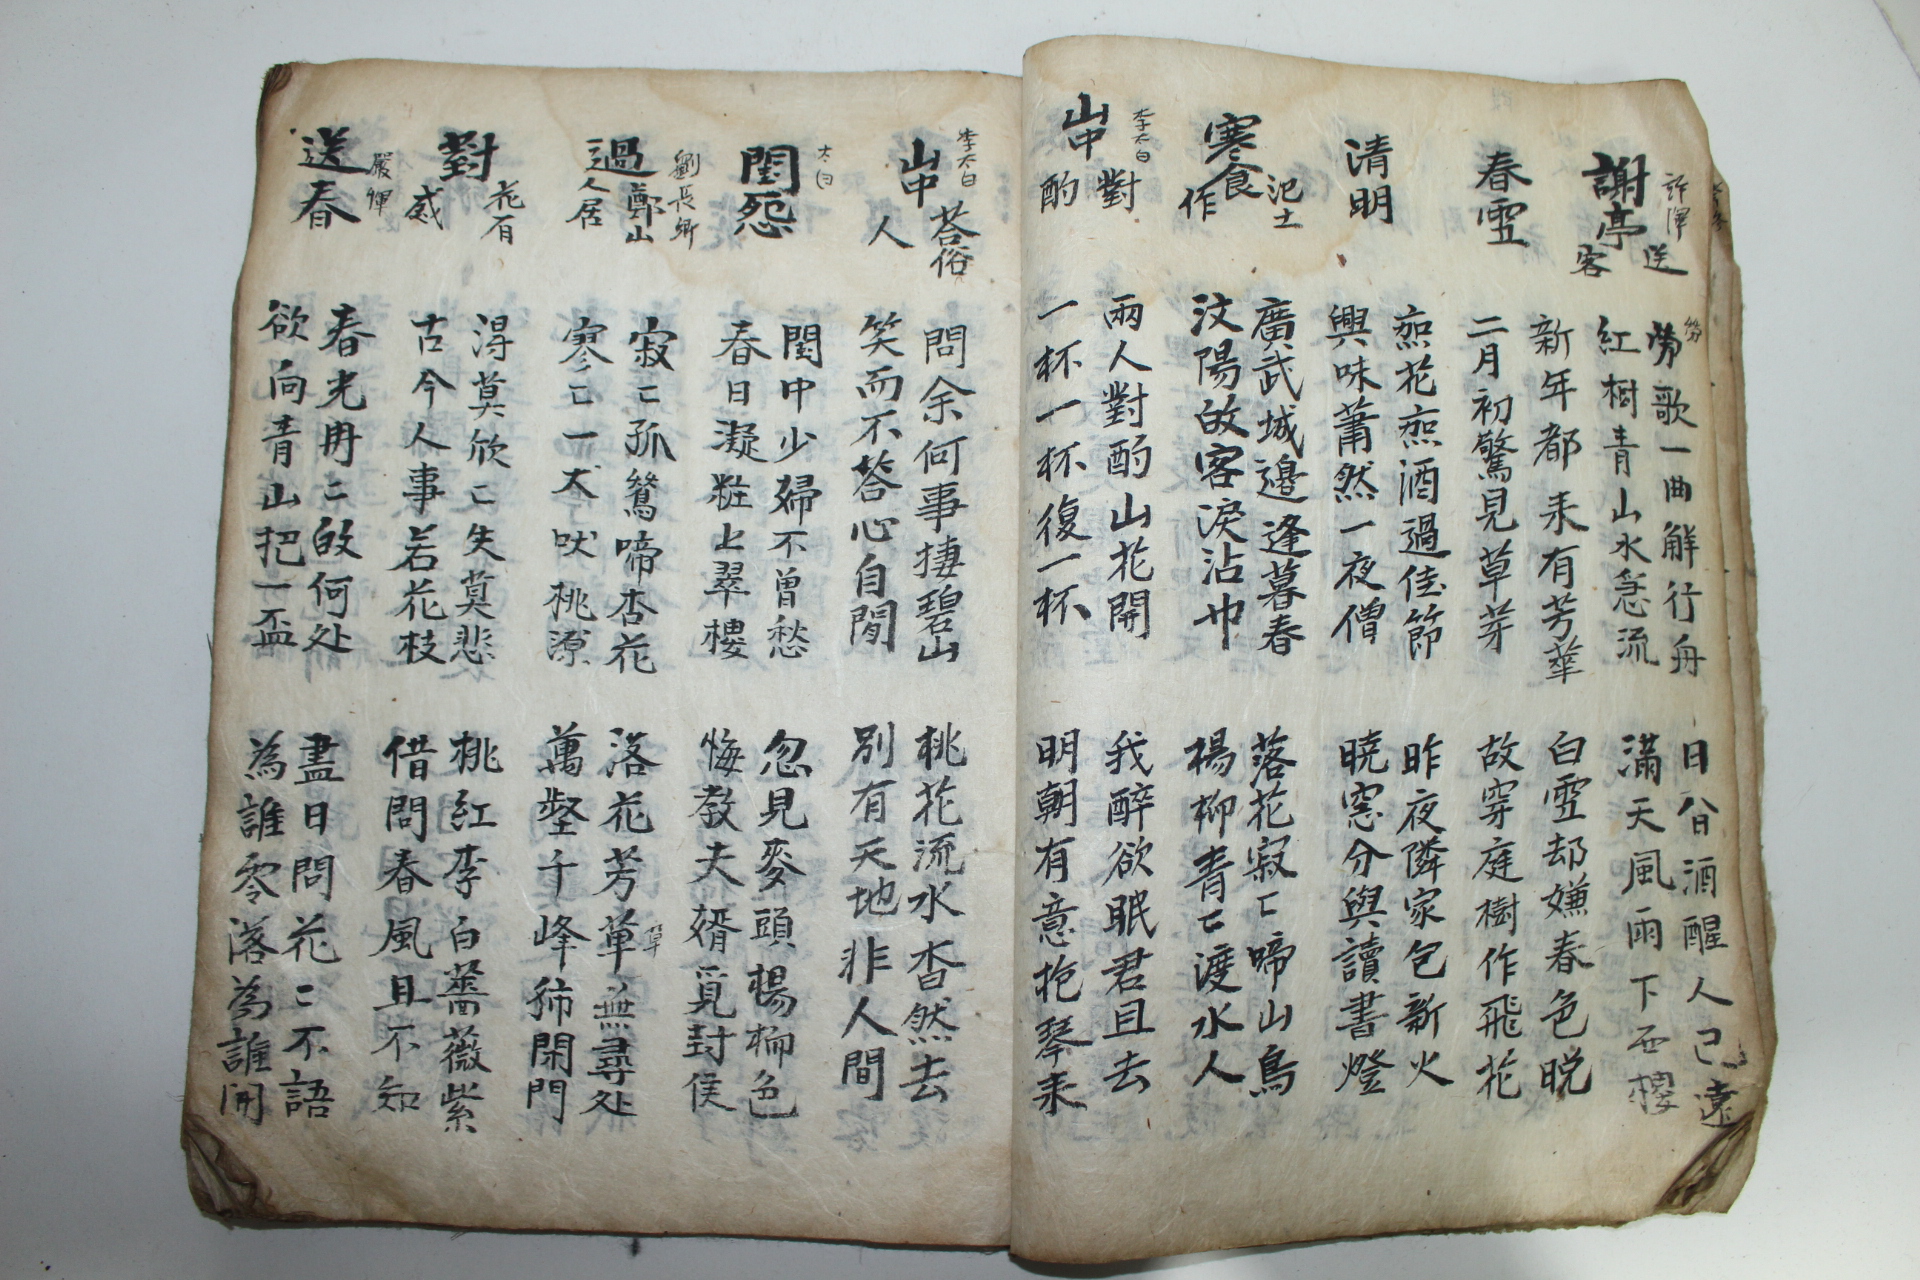 許渾
謝亭送客
勞歌一曲解行舟
日昏酒醒人已遠
紅樹青山水急流
滿天風雨下西樓
春雪
新年都未有芳華
白雪却嫌春色晚
二月初驚見草芽
故穿庭樹作飛花
清明
無花無酒過佳節
昨夜隣家包新火
興味蕭然一夜僧
曉窓分與讀書燈
寒食氾上作
廣武城邊逢暮春
落花寂〻啼山鳥
汶陽故客淚沾巾
楊柳青〻渡水人
李太白
山中對酌
兩人對酌山花開
我醉欲眠君且去
一杯一杯復一杯
明朝有意抱琴来
李太白
山中荅俗人
問余何事捿碧山
桃花流水杳然去
笑而不荅心自閒
別有天地非人間
太白
閨怨
閨中少婦不曾愁
忽見麥頭楊柳色
春日凝粧上翠樓
悔教夫婿覓封侯
劉長卿
過鄭山人居
寂〻孤鶯啼杏花
落花芳草無尋处
寒〻一犬吠桃源
萬壑千峰獨閑門
對花有感
淂莫欣〻失莫悲
桃紅李白薔薇紫
古今人事若花枝
借問春風且不知
嚴惲
送春
春光冉〻故何处
盡日問花〻不語
欲向青山把一盃
為誰零落為誰開